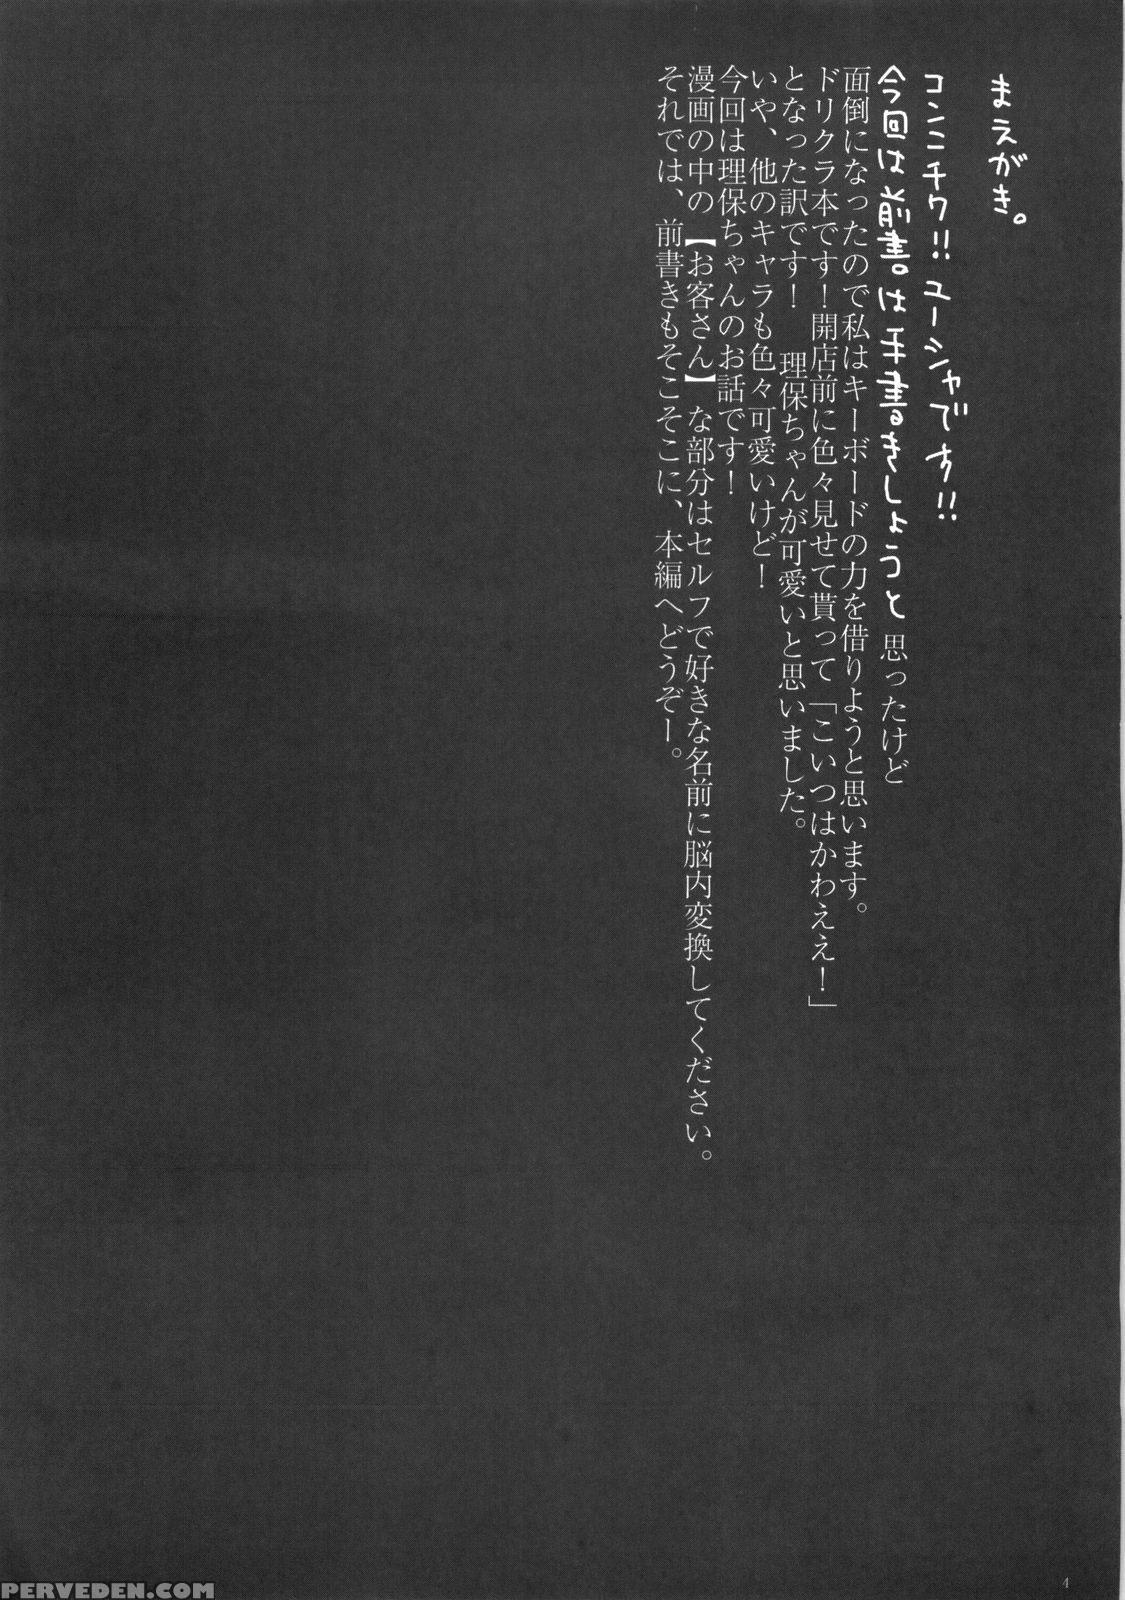 まえがき。
コンニチワ!! ユーシャです!!
今回は前書は手書きしようと思ったけど
面倒になったので私はキーボードの力を借りようと思います。
ドリクラ本です！開店前に色々見せて貰って「こいつはかわええ！」
となった訳です！　理保ちゃんが可愛いと思いました。
いや、他のキャラも色々可愛いけど！
今回は理保ちゃんのお話です！
漫画の中の【お客さん】な部分はセルフで好きな名前に脳内変換してください。
それでは、前書きもそこそこに、本編へどうぞー。
4
PERVEDEN.COM